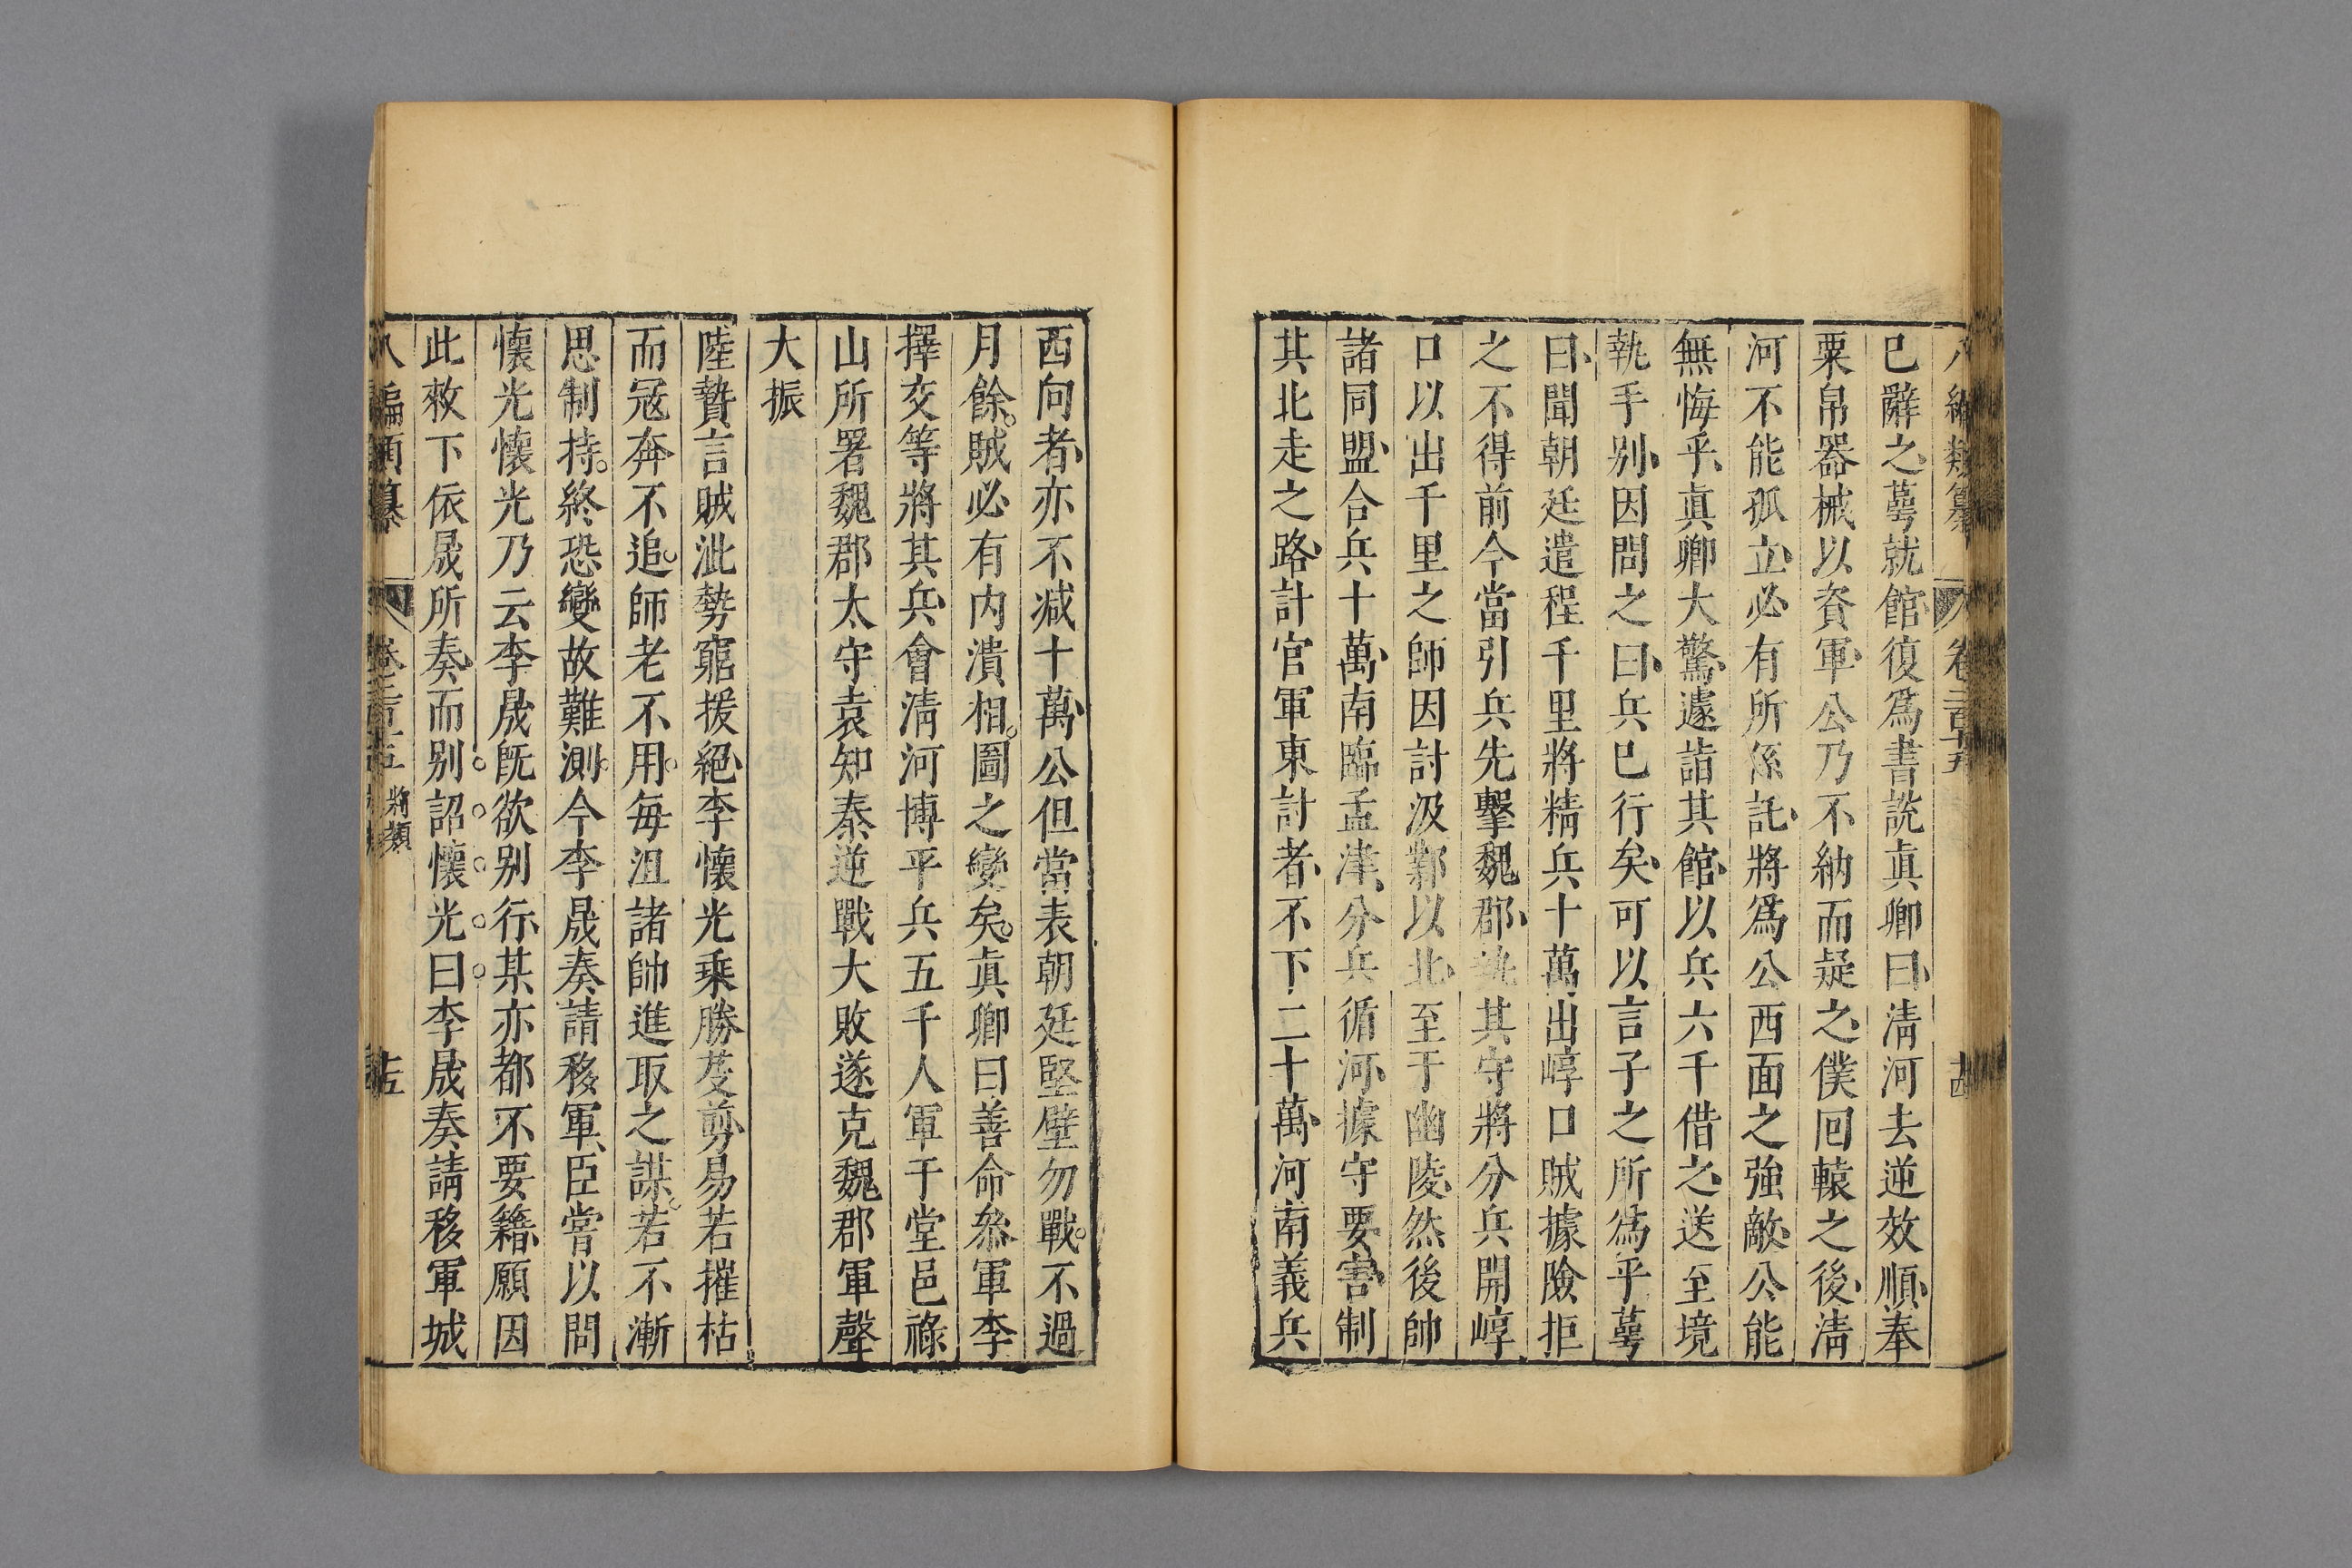 八編類纂 卷二百十五 十四
已辭之蕚就館復爲書說眞卿曰淸河去逆效順奉
粟帛器械以資軍公乃不納而疑之僕囘轅之後淸
河不能孤立必有所係託將爲公西面之強敵公能
無悔乎眞卿大驚遽詣其館以兵六千借之送至境
執手別因問之曰兵已行矣可以言子之所爲乎蕚
曰聞朝廷遣程千里將精兵十萬出崞口賊據險拒
之不得前今當引兵先擊魏郡執其守將分兵開崞
口以出千里之師因討汲鄴以北至于幽陵然後帥
諸同盟合兵十萬南臨孟津分兵循河據守要害制
其北走之路計官軍東討者不下二十萬河南義兵
西向者亦不減十萬公但當表朝廷堅壁勿戰不過
月餘賊必有内潰相圖之變矣眞卿曰善命叅軍李
擇交等將其兵會淸河博平兵五千人軍于堂邑祿
山所署魏郡太守袁知泰逆戰大敗遂克魏郡軍聲
大振
陸贄言賊泚勢窮援絕李懷光乘勝芟剪易若摧枯
而冦奔不追師老不用每沮諸帥進取之謀若不漸
思制持終恐變故難測今李晟奏請移軍臣嘗以問
懷光懷光乃云李晟旣欲别行某亦都不要籍願因
此敕下依晟所奏而别詔懷光曰李晟奏請移軍城
八編類纂 卷二百十五 將類 十五